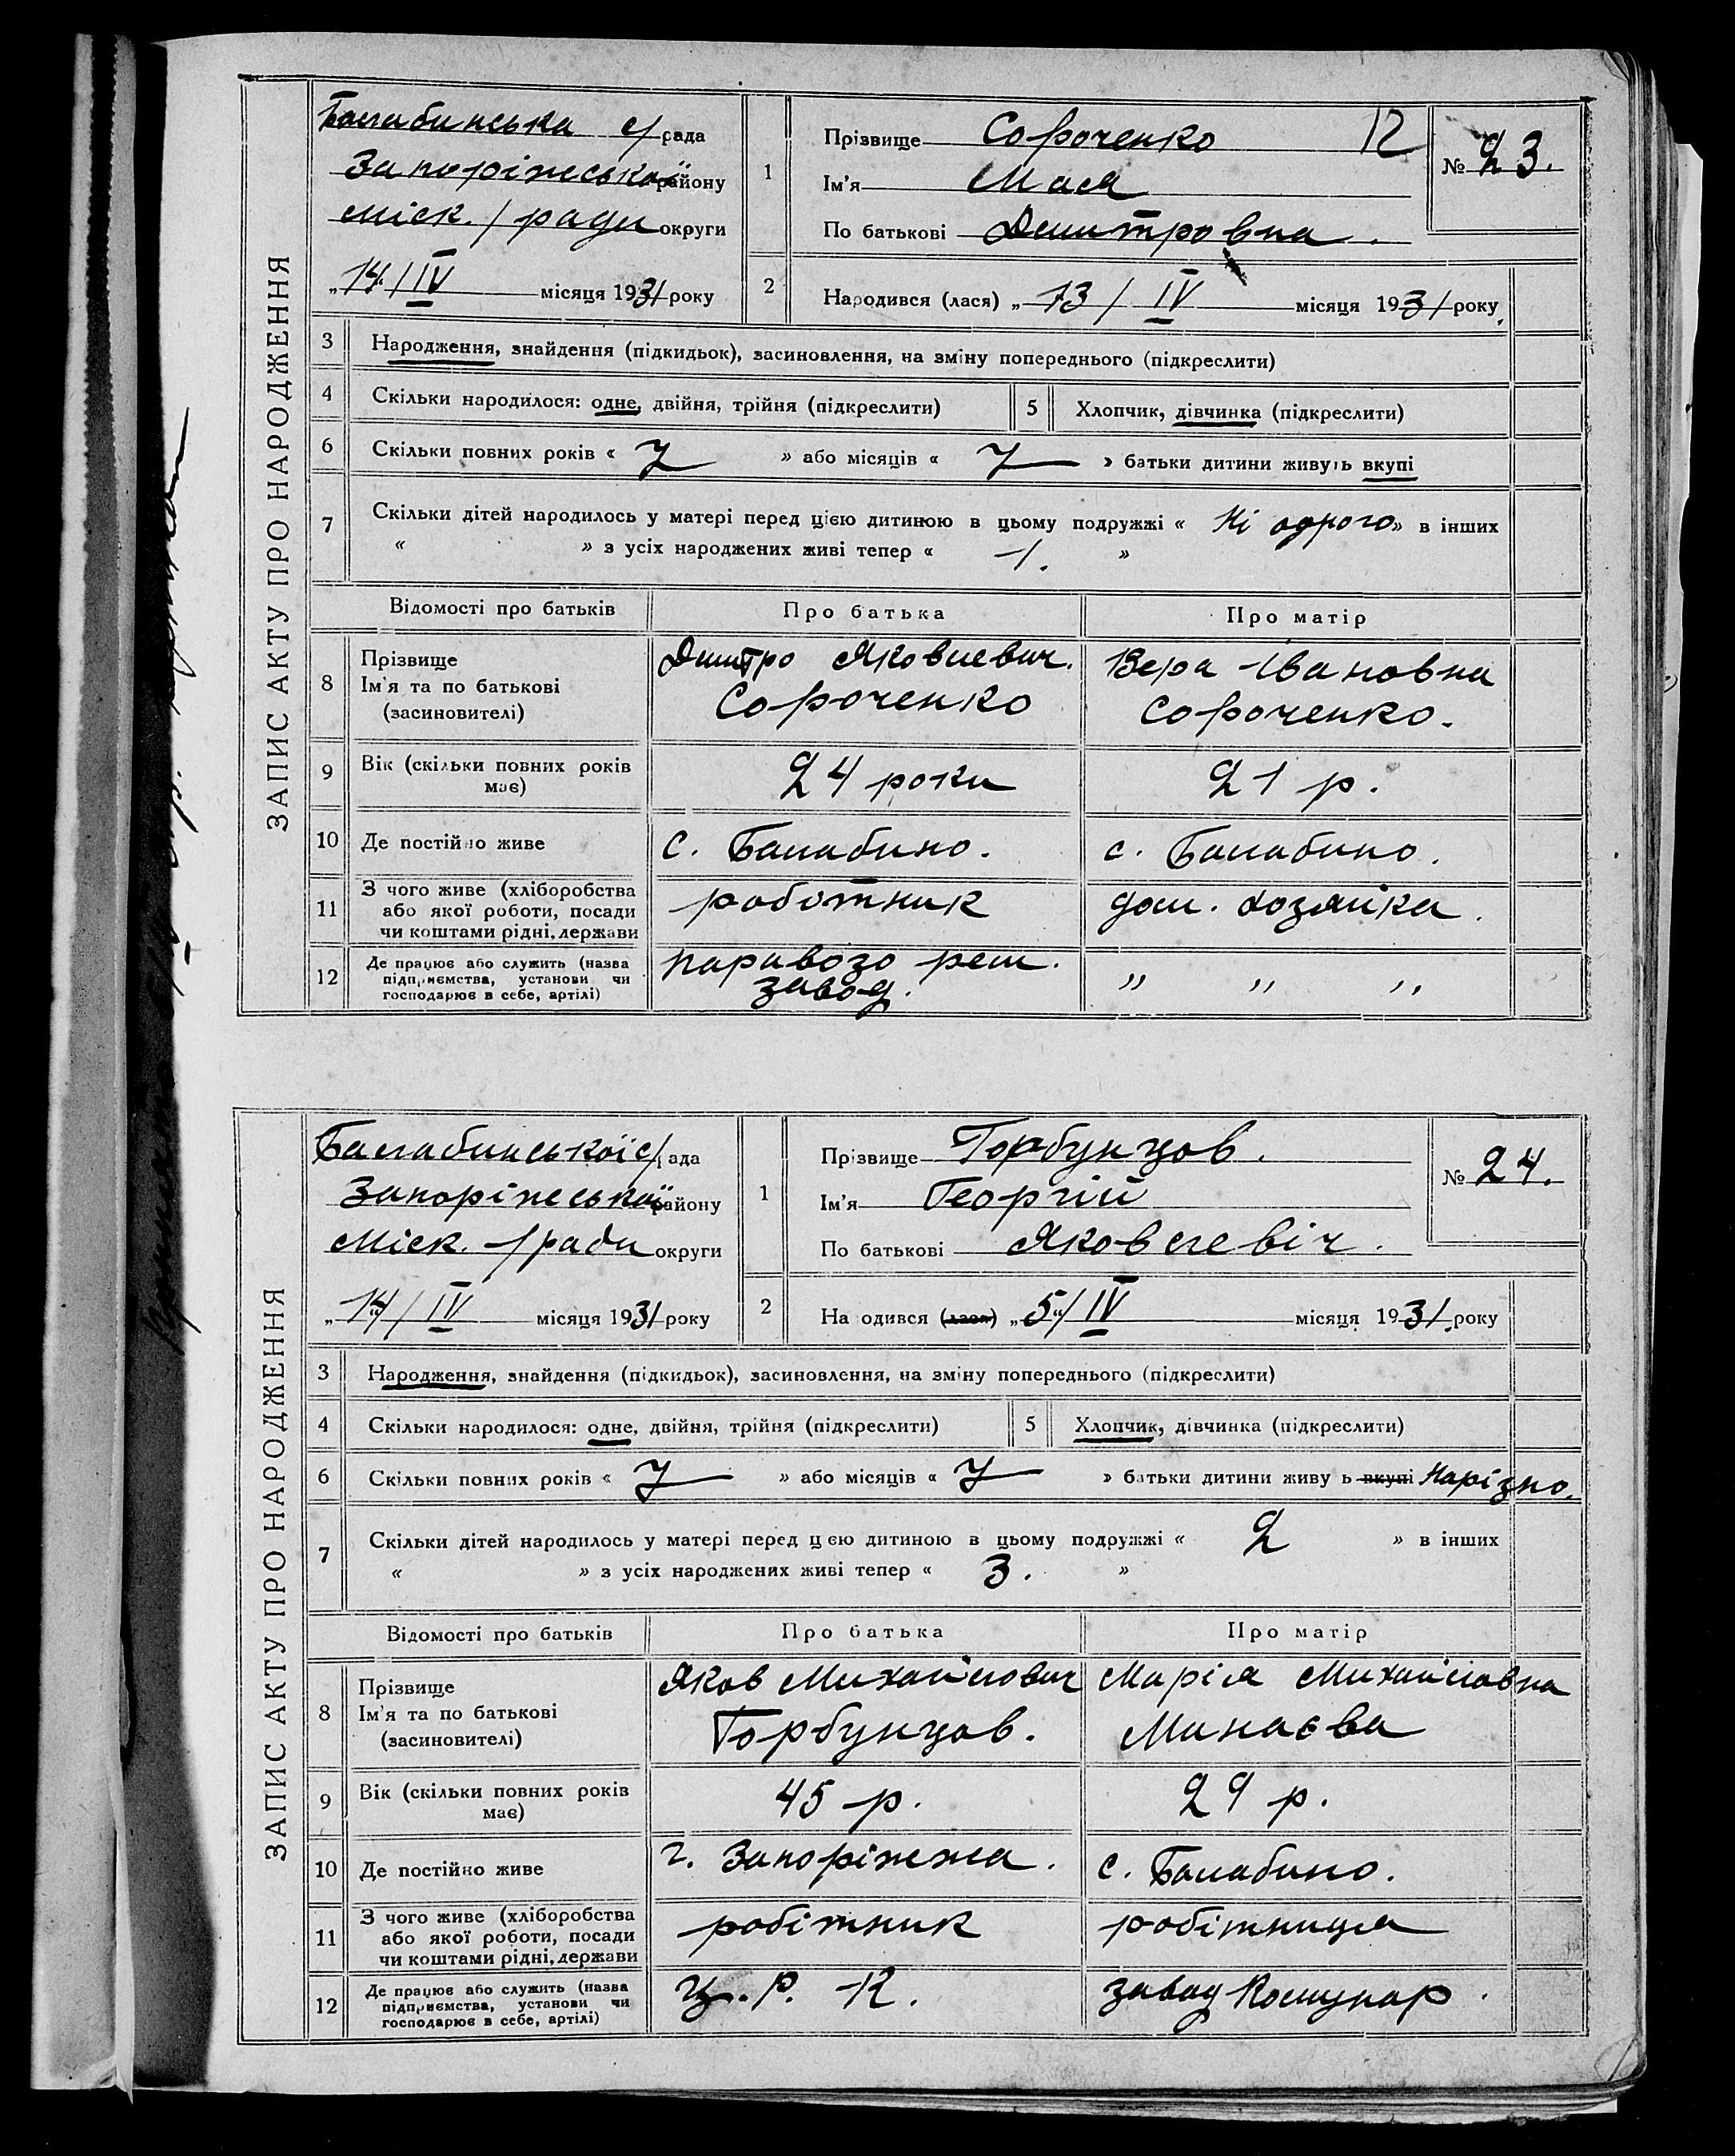 ЗАПИС АКТУ ПРО НАРОДЖЕННЯ
Балабинська с/рада
Запоріжської району
міск. /ради округи
„14/IV місяця 1931 року
1
Прізвище Сороченко 12
Ім'я Мая
По батькові Дмитровна.
№ 23.
2
Народився (лася) „13/IV місяця 1931 року
3 Народження, знайдення (підкидьок), засиновлення, на зміну попереднього (підкреслити)
4 Скільки народилося: одне, двійня, трійня (підкреслити) 5 Хлопчик, дівчинка (підкреслити)
6 Скільки повних років « » або місяців « » батьки дитини живуть вкупі
7 Скільки дітей народилось у матері перед цією дитиною в цьому подружжі « Ні одного » в інших
« » з усіх народжених живі тепер « 1. »
Відомості про батьків Про батька Про матір
8 Прізвище Ім'я та по батькові (засиновителі)
Дмитро Яковлевич. Сороченко
Вера Івановна Сороченко.
9 Вік (скільки повних років має) 24 роки 21 р.
10 Де постійно живе с. Балабино. с. Балабино.
11 З чого живе (хліборобства або якої роботи, посади чи коштами рідні, держави робітник дом. хозяйка.
12 Де працює або служить (назва підприємства, установи чи господарює в себе, артілі) паравозо рем. завод. „ „ „
ЗАПИС АКТУ ПРО НАРОДЖЕННЯ
Балабинської с/рада
Запоріжської району
міск. /ради округи
„14/IV місяця 1931 року
1
Прізвище Горбунцов.
Ім'я Георгій
По батькові Яковлевіч.
№ 24.
2
Народився (лася) „5/IV місяця 1931 року
3 Народження, знайдення (підкидьок), засиновлення, на зміну попереднього (підкреслити)
4 Скільки народилося: одне, двійня, трійня (підкреслити) 5 Хлопчик, дівчинка (підкреслити)
6 Скільки повних років « » або місяців « » батьки дитини живуть вкупі Нарізно.
7 Скільки дітей народилось у матері перед цією дитиною в цьому подружжі « 2 » в інших
« » з усіх народжених живі тепер « 3. »
Відомості про батьків Про батька Про матір
8 Прізвище Ім'я та по батькові (засиновителі)
Яков Михайлович Горбунцов.
Марія Михайловна Минаєва
9 Вік (скільки повних років має) 45 р. 29 р.
10 Де постійно живе г. Запоріжжа. с. Балабино.
11 З чого живе (хліборобства або якої роботи, посади чи коштами рідні, держави робітник робітниця
12 Де працює або служить (назва підприємства, установи чи господарює в себе, артілі) Ц.Р.К. завод Комунар.